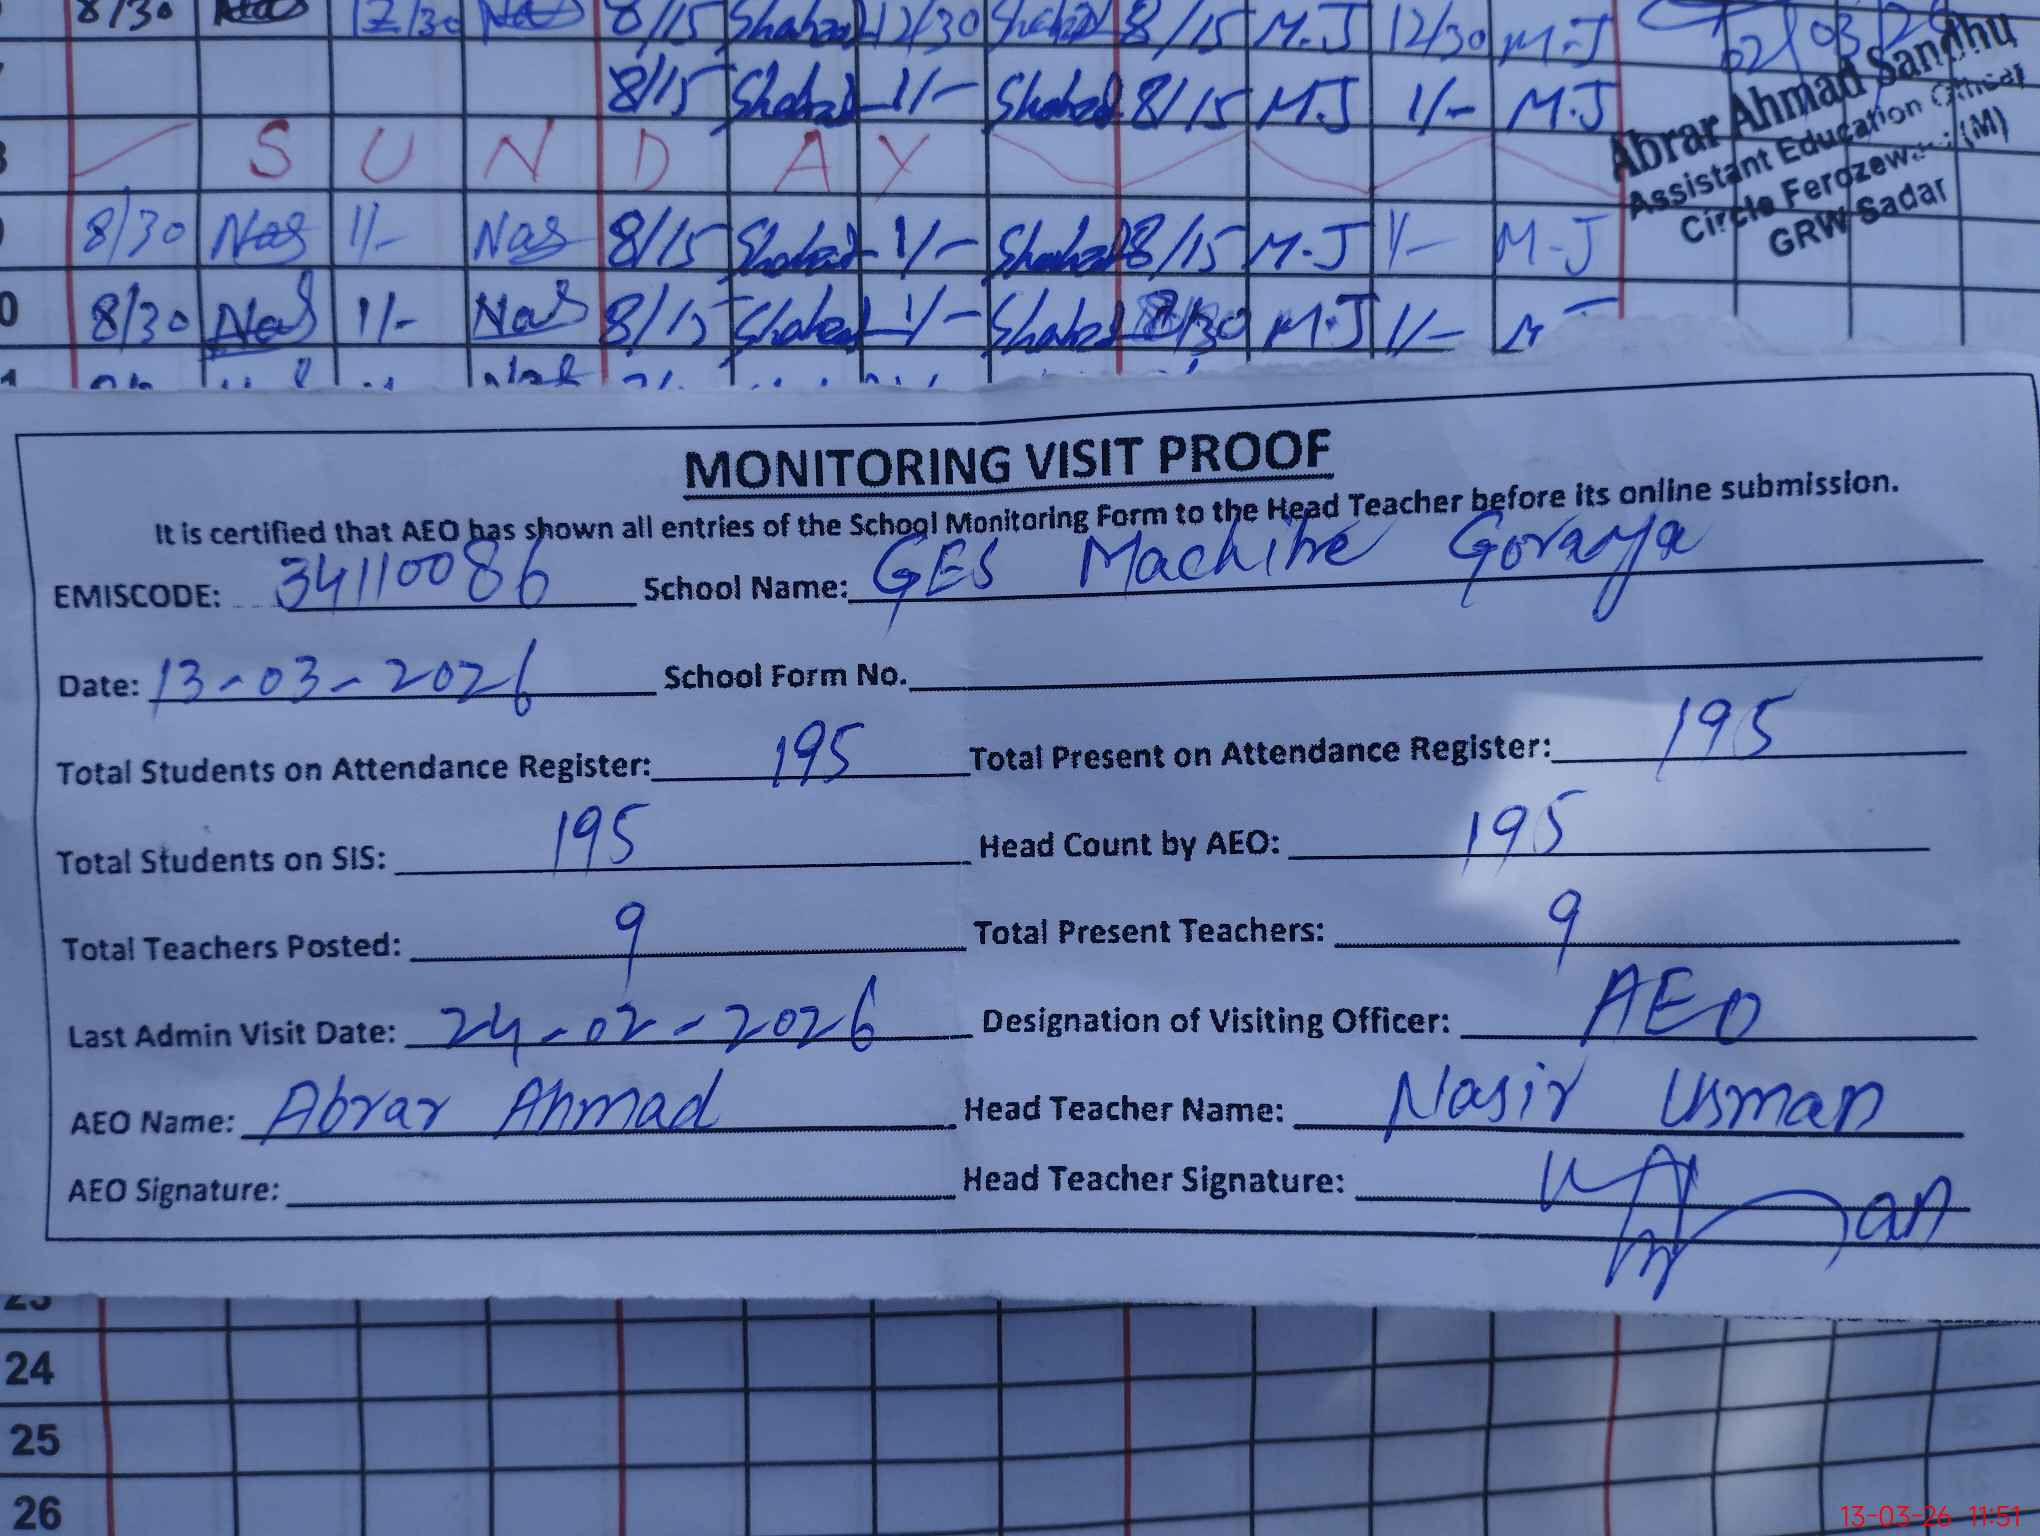 8/30 Nas 12/30 Nas 8/15 Shahzad 12/30 Shahzad 8/15 M.J 12/30 M.J
02/03/26
8/15 Shahzad 1/- Shahzad 8/15 M.J 1/- M.J
Abrar Ahmad Sandhu
Assistant Education Officer
Circle Ferozewala (M)
GRW Sadar
S U N D A Y
8/30 Nas 1/- Nas 8/15 Shahzad 1/- Shahzad 8/15 M.J 1/- M.J
8/30 Nas 1/- Nas 8/15 Shahzad 1/- Shahzad 8/30 M.J 1/-
MONITORING VISIT PROOF
It is certified that AEO has shown all entries of the School Monitoring Form to the Head Teacher before its online submission.
EMISCODE: 34110086 School Name: GES Machike Goraya
Date: 13-03-2026 School Form No.
Total Students on Attendance Register: 195 Total Present on Attendance Register: 195
Total Students on SIS: 195 Head Count by AEO: 195
Total Teachers Posted: 9 Total Present Teachers: 9
Last Admin Visit Date: 24-02-2026 Designation of Visiting Officer: AEO
AEO Name: Abrar Ahmad Head Teacher Name: Nasir Usman
AEO Signature: Head Teacher Signature:
24
25
26
13-03-26 11:51